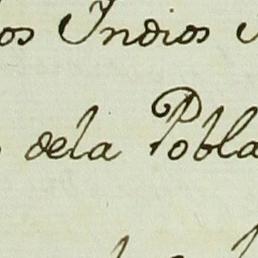 los Indios
dela Pobla